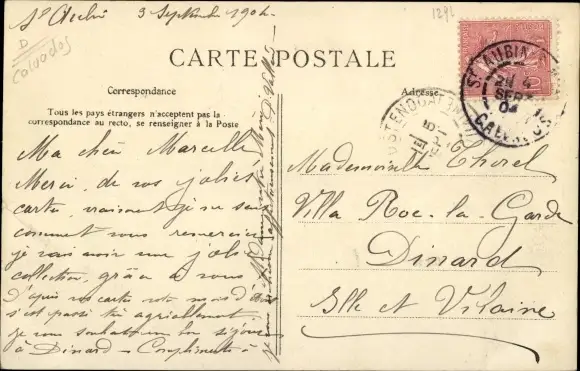 St Aubin 3 Septembre 1904
1291
D
Calvados
CARTE POSTALE
Correspondance
Adresse
Tous les pays étrangers n'acceptent pas la
correspondance au recto, se renseigner à la Poste
ST AUBIN
SEPT
04
CALVADOS
Ma chère Marcelle
Merci de vos jolies
cartes, vraiment je ne sais
comment vous remercier
je vais avoir une jolie
collection, grâce à vous
D'après vos cartes votre mois d'Août
s'est passé très agréablement.
je vous souhaite un bon séjour
à Dinard – Compliments à
Mademoiselle Thorel
Villa Roc-la-Garde
Dinard
Ille et Vilaine